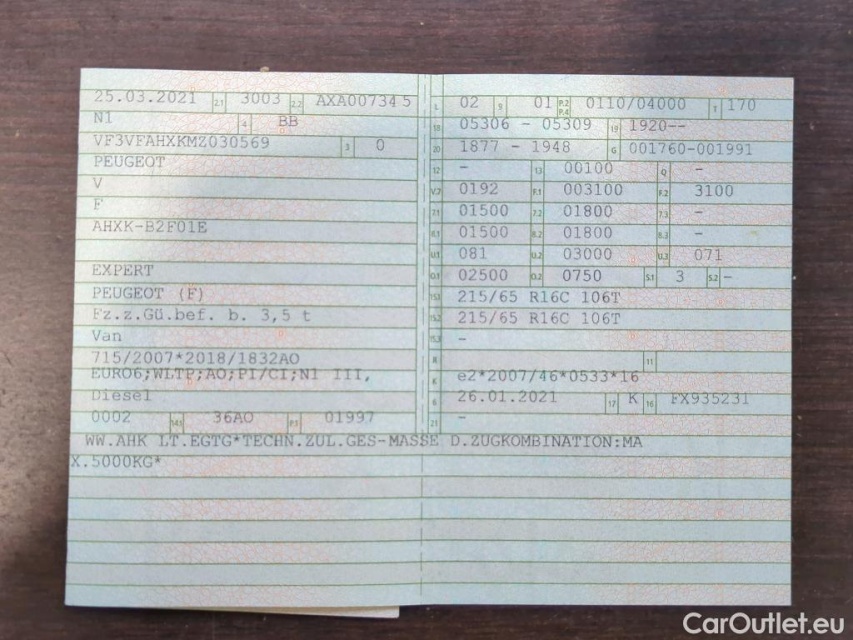 25.03.2021 2.1 3003 2.2 AXA007345
N1 4 BB
VF3VFAHXKMZ030569 3 0
PEUGEOT
V
F
AHXK-B2F01E
EXPERT
PEUGEOT (F)
Fz.z.Gü.bef. b. 3,5 t
Van
715/2007*2018/1832AO
EURO6;WLTP;AO;PI/CI;N1 III,
Diesel
0002 14.1 36AO P.1 01997
L 02 9 01 P.2 P.4 0110/04000 T 170
18 05306 - 05309 19 1920--
20 1877 - 1948 G 001760-001991
12 - 13 00100 Q -
V.7 0192 F.1 003100 F.2 3100
7.1 01500 7.2 01800 7.3 -
8.1 01500 8.2 01800 8.3 -
U.1 081 U.2 03000 U.3 071
O.1 02500 O.2 0750 S.1 3 S.2 -
15.1 215/65 R16C 106T
15.2 215/65 R16C 106T
15.3 -
R 11
K e2*2007/46*0533*16
6 26.01.2021 17 K 16 FX935231
21 -
WW.AHK LT.EGTG*TECHN.ZUL.GES-MASSE D.ZUGKOMBINATION:MA
X.5000KG*
CarOutlet.eu